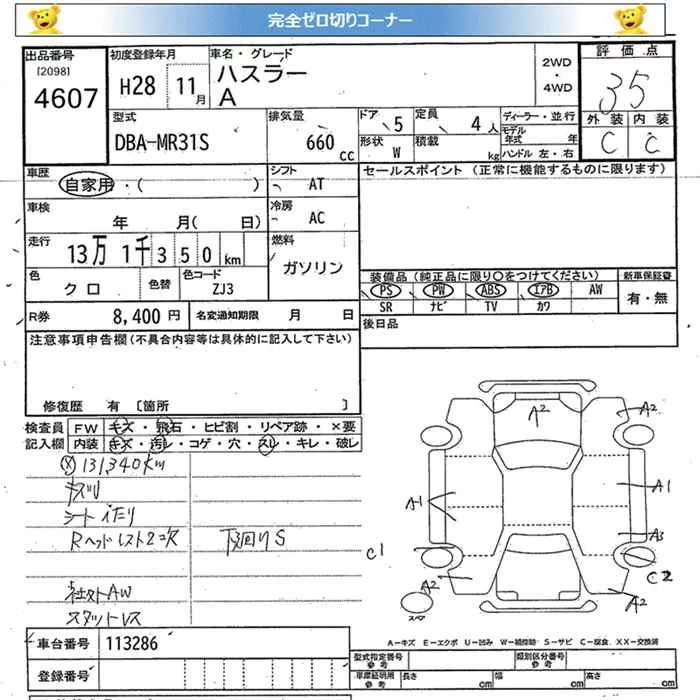 完全ゼロ切りコーナー
出品番号 [2098] 4607
初度登録年月 H28 11月
車名・グレード ハスラー A
2WD・4WD
評価点 35
外装 内装
C C
型式 DBA-MR31S
排気量 660cc
ドア 5 定員 4人
形状 W 積載 kg
ディーラー・並行
モデル年式 年
ハンドル 左・右
車歴 自家用・( )
シフト AT
セールスポイント (正常に機能するものに限ります)
車検 年 月( 日)
冷房 AC
走行 13万1千350km
燃料 ガソリン
色 クロ 色替 色コード ZJ3
装備品(純正品に限り○をつけてください) 新車保証書
PS PW ABS エアB AW 有・無
SR ナビ TV カワ
R券 8,400円 名変通知期限 月 日
後日品
注意事項申告欄(不具合内容等は具体的に記入して下さい)
修復歴 有 [箇所 ]
検査員記入欄
FW キズ・飛石・ヒビ割・リペア跡・×要
内装 キズ・汚レ・コゲ・穴・スレ・キレ・破レ
131,340km
シートイタミ
Rヘッドレスト2コ欠 下廻りS
社外AW
スタッドレス
A2 A2
A1 A1
A3
C1 C2
A2 A2
スペア
A-キズ E-エクボ U-凹み W-補修跡 S-サビ C-腐食 XX-交換済
車台番号 113286
登録番号
型式指定番号 参考 類別区分番号 参考
車庫証明用 参考 長さ cm 幅 cm 高さ cm